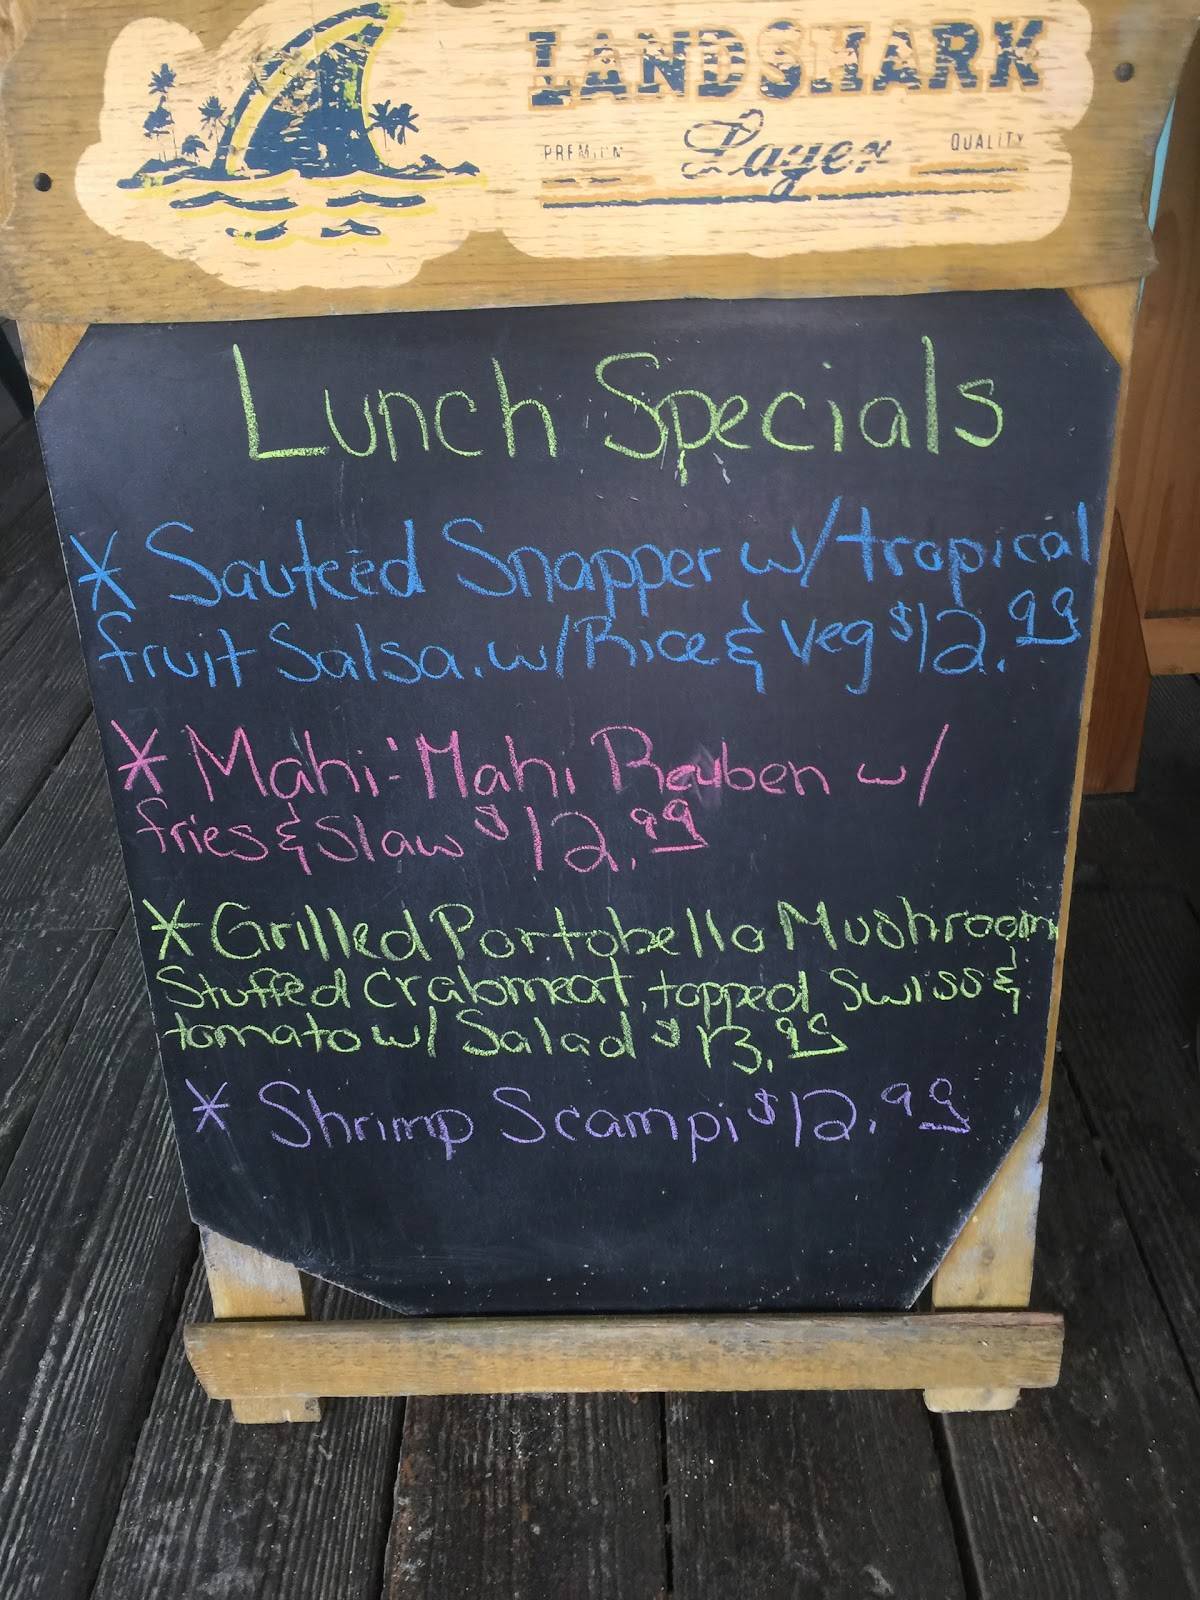 LANDSHARK
PREMIUM Lager QUALITY
Lunch Specials
* Sauteéd Snapper w/ tropical
fruit Salsa. w/ Rice & Veg $12.99
* Mahi-Mahi Reuben w/
fries & Slaw $12.99
* Grilled Portobello Mushroom
Stuffed Crabmeat, topped Swiss &
tomato w/ Salad $13.95
* Shrimp Scampi $12.99